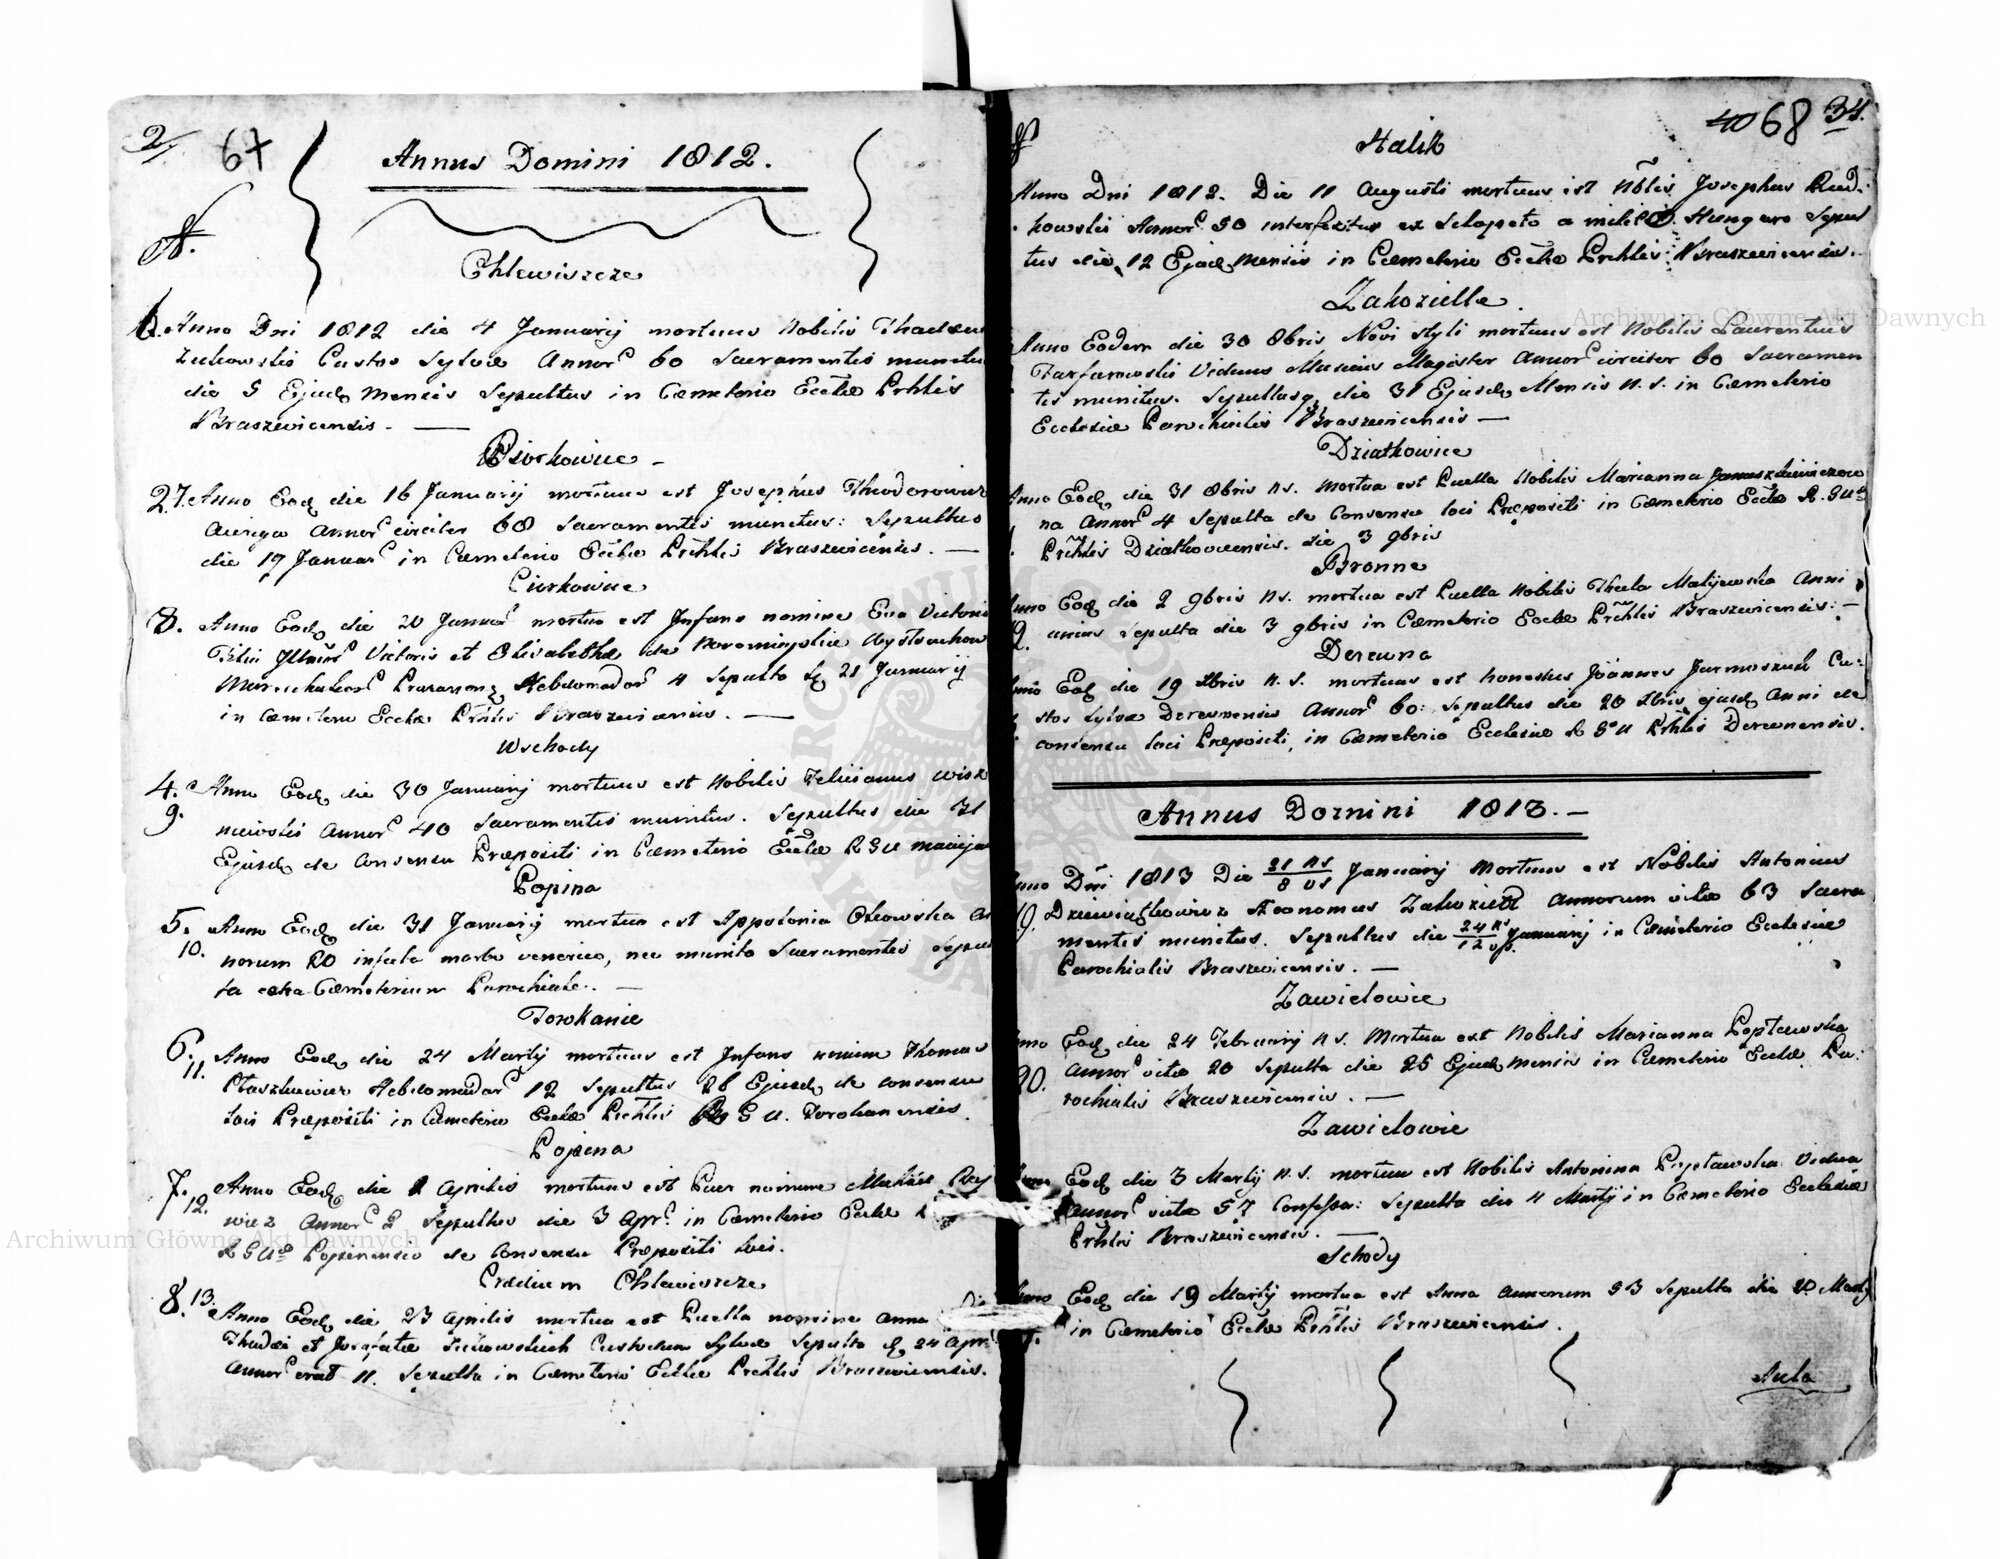 2/ 67
Annus Domini 1812.
A.
Chlewiszcze
6. Anno Dni 1812 die 4 Januarij mortuus Nobilis Thadæu
Zukowski Custos Sylvæ Annor 60 Sacramentis munitu
die 5 Ejusd Mensis Sepultus in Cœmeterio Ecclæ Prhlis
Braszewicensis.
Piorkowice
27. Anno Eod die 16 Januarij mortuus est Josephus Theodorowicz
Auriga Annor circiter 68 Sacramentis munitus: Sepultus
die 17 Januar in Cœmeterio Ecclæ Prhlis Braszewicensis.
Ciurkowice
8. Anno Eod die 20 Januar mortua est Infans nomine Eva Victoria
Filia Victoris et Elisabethæ de
Hebdomadar 4 Sepulta d 21 Januarij
in Cœmeterio Ecclæ Prhlis Braszewicensis.
Wschody
4. Anno Eod die 30 Januarij mortuus est Nobilis Felicianus Wisz
9. niewski Annor 40 Sacramentis munitus. Sepultus die 31
Ejusd de Consensu Præpositi in Cœmeterio Ecclæ RGU
Popina
5. Anno Eod die 31 Januarij mortua est Appolonia Olkowska An
10. norum 20 infecta morbo venerico, nec munita Sacramentis Sepul
ta extra Cœmeterium Parochiale.
Torokanie
6. Anno Eod die 24 Martij mortuus est Infans nomine Thomas
11. Ptaszkiewicz Hebdomadar 12 Sepultus 26 Ejusd de consensu
loci Præpositi in Cœmeterio Ecclæ Prhlis R G U. Torokanensis.
Popina
7. Anno Eod die 1 Aprilis mortuus est Puer nomine
12. wicz Annor 2 Sepultus die 3 Apr. in Cœmeterio Ecclæ
R G U Popinensis de Consensu Præpositi loci.
Prædium Chlewiszcze
8. 13. Anno Eod die 23 Aprilis mortua est Puella nomine Anna
Thadæi et Josephatæ Zukowskich Custodum Sylvæ Sepulta d 24 Apr
Annor erat 11. Sepulta in Cœmeterio Ecclæ Prhlis Braszewicensis.
40 68 34.
Halik
Anno Dni 1812. Die 11 Augusti mortuus est Nblis Josephus Rud-
kowski Annor 50 interfectus ex Sclopeto a milite Hungaro Sepul
tus die 12 Ejusd Mensis in Cœmeterio Ecclæ Prhlis Braszewicensis.
Zakozielle.
Anno Eodem die 30 8bris Novi styli mortuus est Nobilis Laurentius
Farfarowski Viduus Musicus Magister Annor circiter 60 Sacramen
tis munitus. Sepultusq die 31 Ejusd Mensis N. S. in Cœmeterio
Ecclesiæ Parochialis Braszewicensis
Dziatkowice
Anno Eod die 31 8bris ns. Mortua est Puella Nobilis Marianna Januszkiewiczow
na Annor 4 Sepulta de Consensu loci Præpositi in Cœmeterio Ecclæ R. G U
Prhlis Dziatkovicensis. die 3 9bris
Bronne
Anno Eod die 2 9bris ns. mortua est Puella Nobilis Thecla Matijewska Anni
9. unius Sepulta die 3 9bris in Cœmeterio Ecclæ Prhlis Braszewicensis:
Derewna
Anno Eod die 19 Xbris n. s. mortuus est honestus Joannes Jarmoszuk Cu-
stos Sylvæ Derewnensis Annor 60: Sepultus die 20 Xbris ejusd Anni de
consensu loci Præpositi, in Cœmeterio Ecclesiæ R G U Prhlis Derewnensis.
Annus Domini 1813.
Anno Dni 1813 Die 21 ns / 8 vs Januarij Mortuus est Nobilis Antonius
19. Dziewiątkowicz Œconomus Zakoziell Annorum vitæ 63 Sacra
mentis munitus. Sepultus die 24 ns / 12 vs Januarij in Cœmeterio Ecclesiæ
Parochialis Braszewicensis.
Zawielowie
Anno Eod die 24 Februarij ns. Mortua est Nobilis Marianna Popławska
20. Annor vitæ 20 Sepulta die 25 Ejusd mensis in Cœmeterio Ecclæ Pa-
rochialis Braszewicensis.
Zawielowie
Anno Eod die 3 Martij n s. mortua est Nobilis Antonina Popławska Vidua
Annor vitæ 57 Confessa: Sepulta die 4 Martij in Cœmeterio Ecclesiæ
Prhlis Braszewicensis.
Schody
Anno Eod die 19 Martij mortua est Anna Annorum 53 Sepulta die 20 Martij
in Cœmeterio Ecclæ Prhlis Braszewicensis.
Aula
Archiwum Główne Akt Dawnych
Archiwum Główne Akt Dawnych